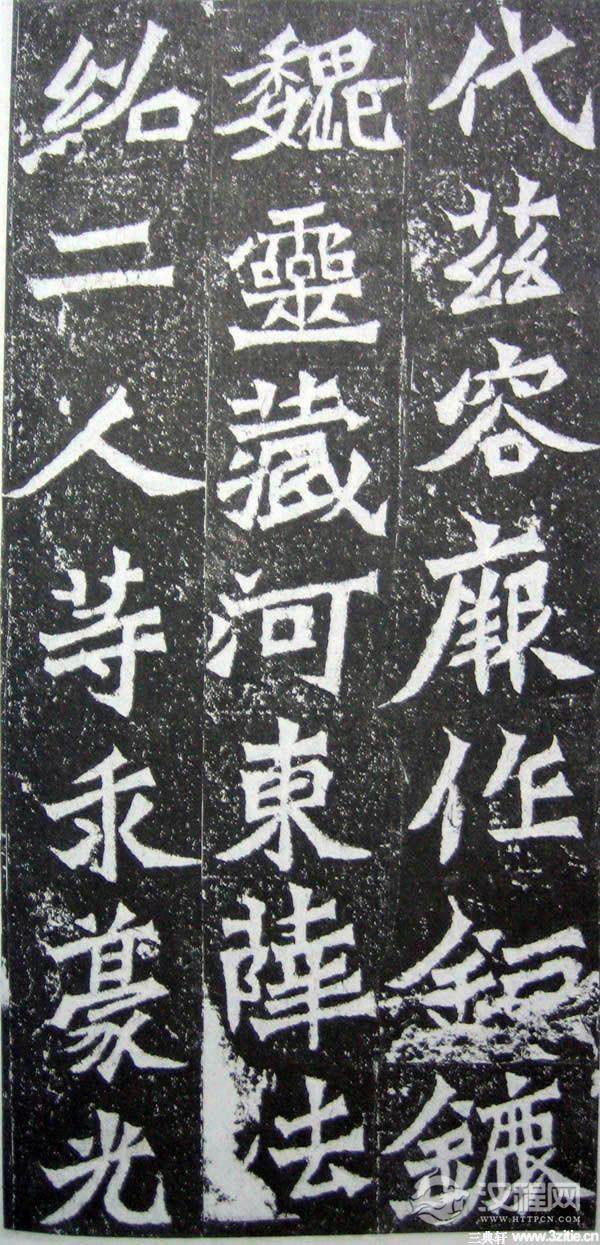 代茲容厥作鉅鏕
魏靈藏河東薛法
紹二人等求豪光
汉程网
WWW.HTTPCN.COM
三典轩 www.3zitie.cn